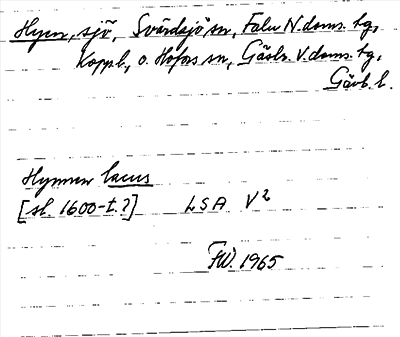 Hyen, sjö, Svärdsjö sn, Falu N. doms. tg,
Koppb., o. Hofors sn, Gästr. V. doms. tg,
Gävb. l.
Hynnen lacus
[sl. 1600-t.?] LSA V2
FW. 1965